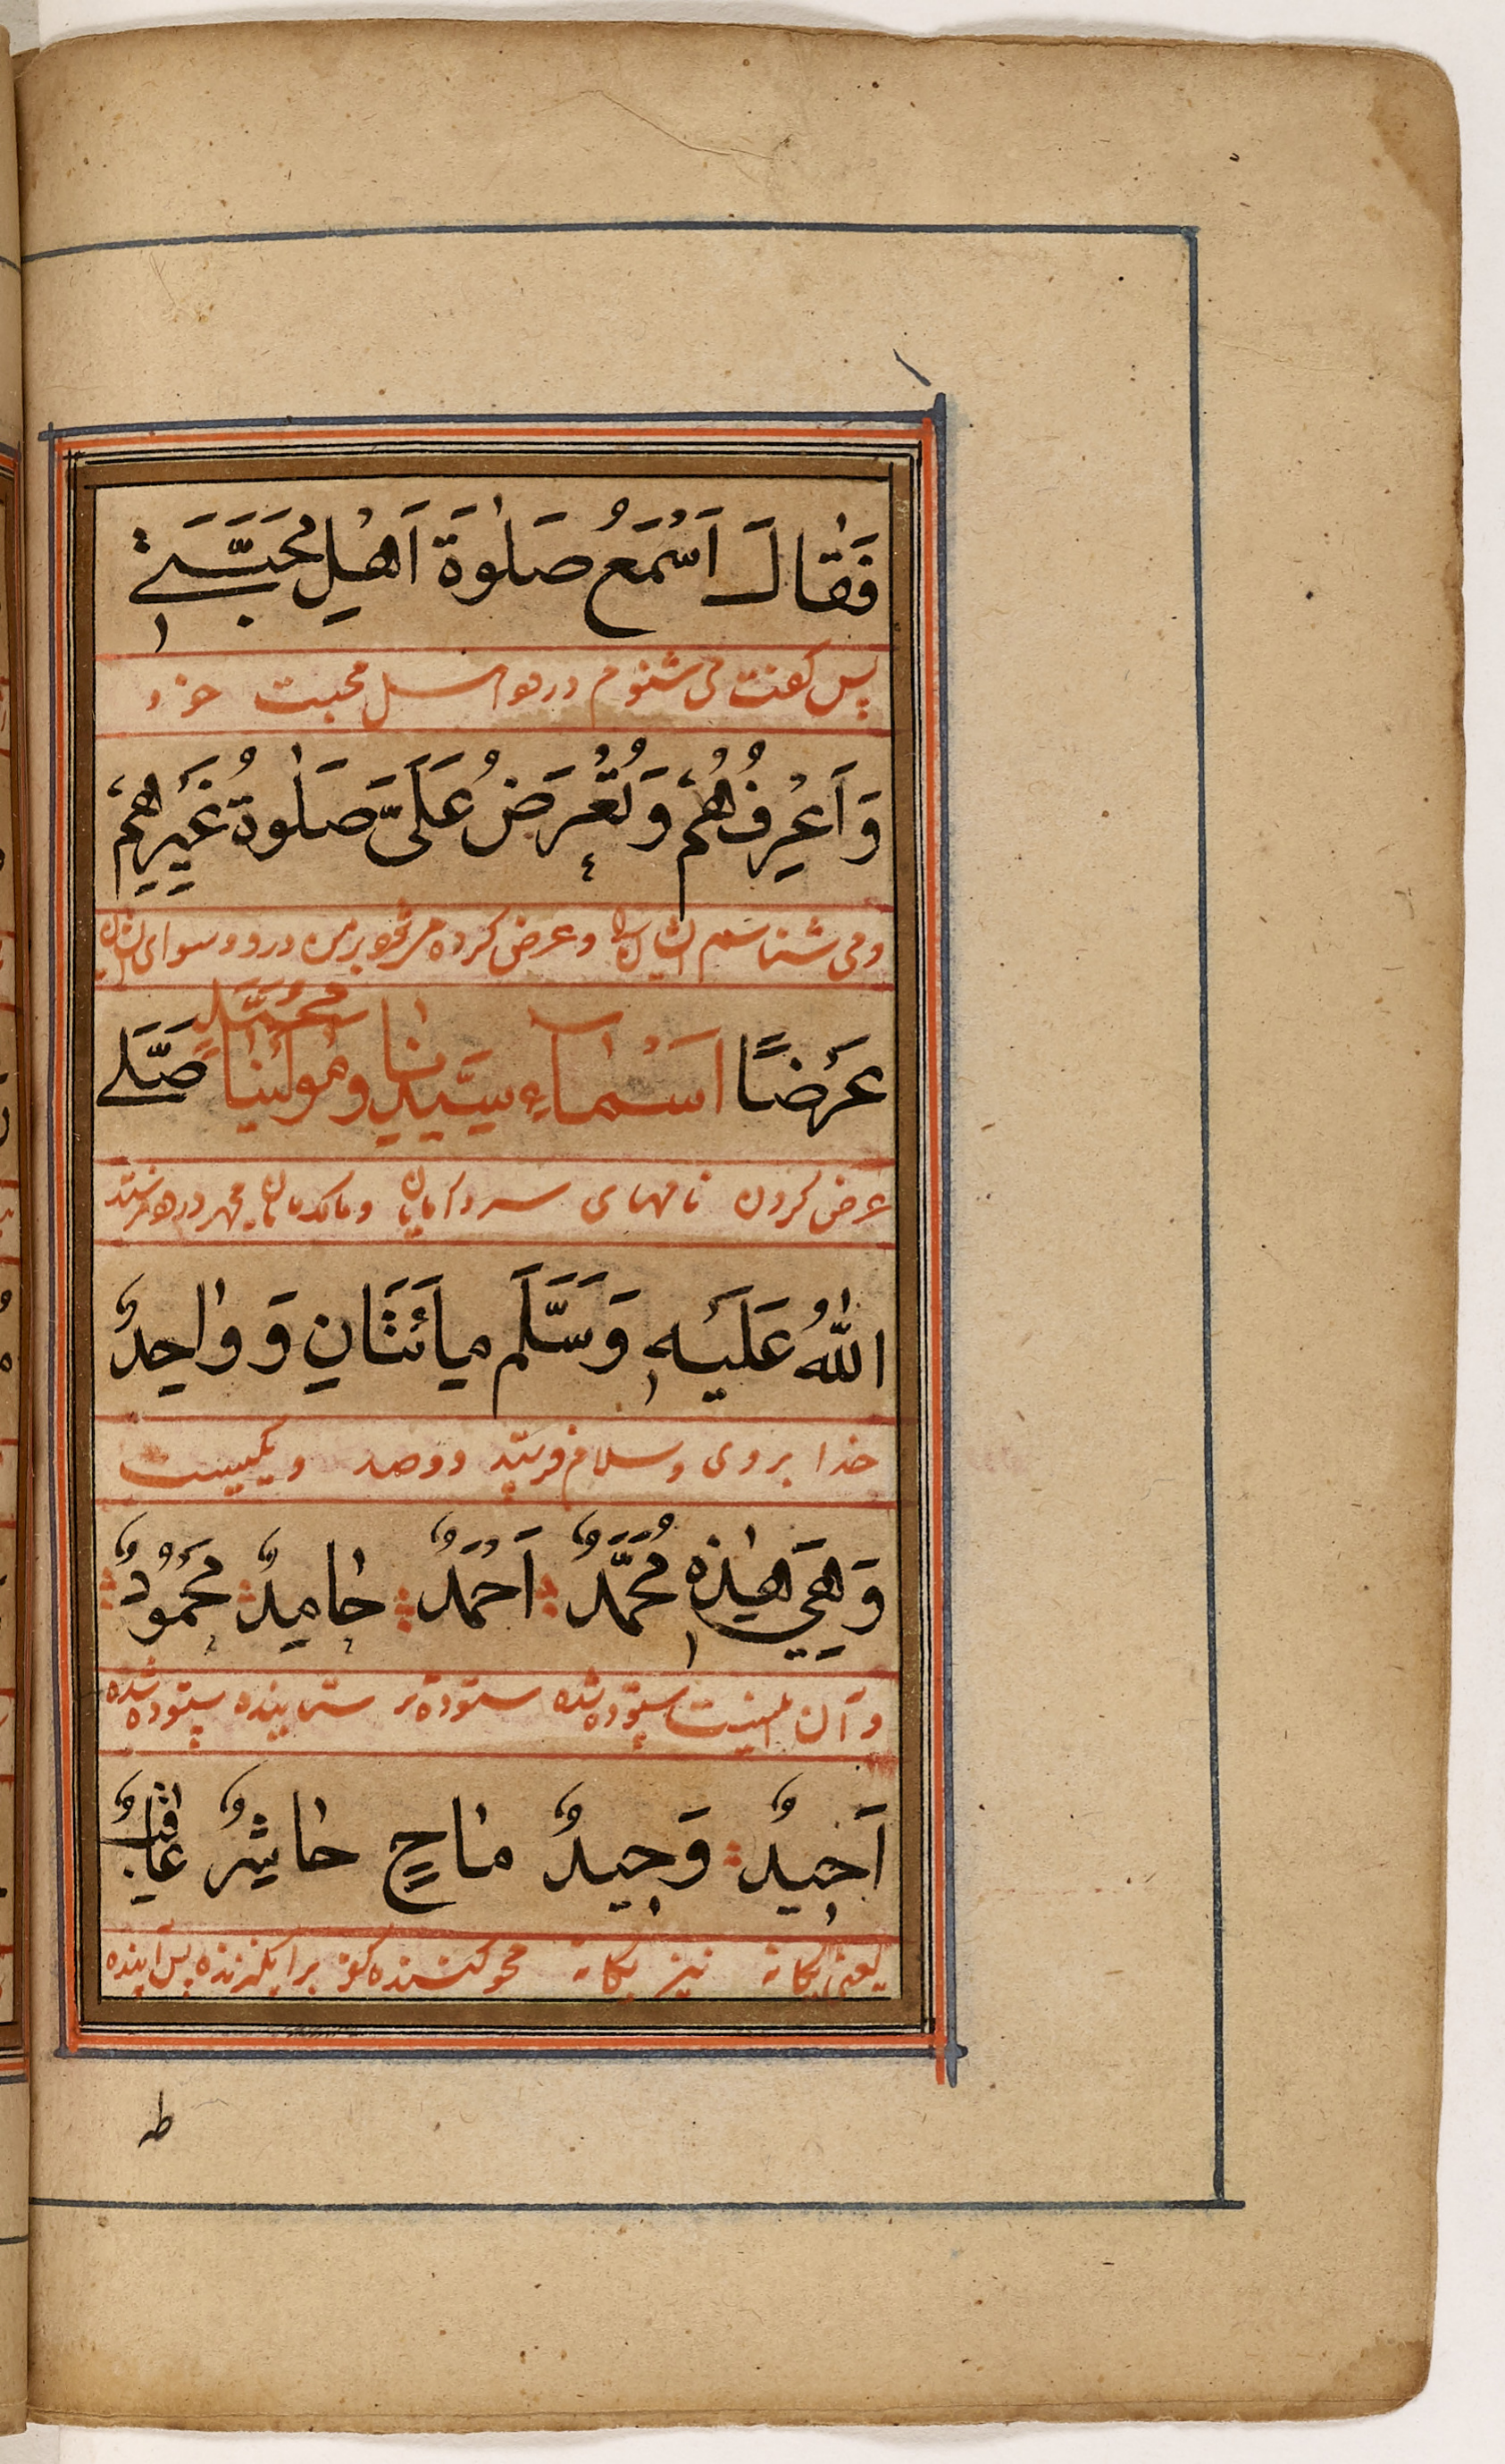 فَقَالَ اَسْمَعُ صَلٰوةَ اَهْلِ مَحَبَّتِيْ
پس گفت می شنوم درود اهل محبت خود
وَاَعْرِفُهُمْ وَتُعْرَضُ عَلَيَّ صَلٰوةُ غَيْرِهِمْ
و می شناسم ایشان را و عرض کرده می شود بر من درود سوای ایشان
عَرْضًا اَسْمَاءِ سَيِّدِنَا وَمَوْلٰينَا مُحَمَّدٍ صَلَّى
عرض کردن نامهای سردار مایان و مالک مایان محمد درود فرستد
اللّٰهُ عَلَيْهِ وَسَلَّمَ مِائَتَانِ وَوَاحِدٌ
خدا بر وی و سلام فرستد دو صد و یکیست
وَهِيَ هٰذِهِ مُحَمَّدٌ اَحْمَدٌ حَامِدٌ مَحْمُوْدٌ
و آن اینست ستوده شده ستوده تر ستاینده ستوده شده
اَحِيْدٌ وَحِيْدٌ مَاحٍ حَاشِرٌ عَاقِبٌ
یعنی یگانه نیز یگانه محو کننده کفر برانگیزنده پس آینده
طه